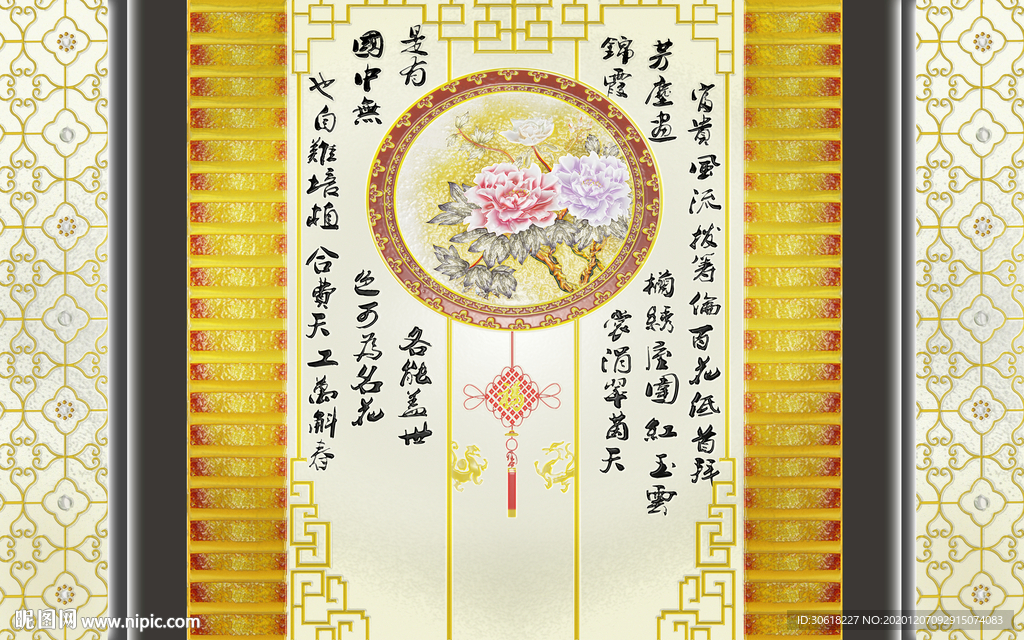 富貴風流拔等倫百花低首拜
芳塵画欄綉幄圍紅玉雲
錦霞裳涓翠茵天
是有各能蓋世
國中無色可為名花
也自難培植合費天工萬斛春
福
昵图网 www.nipic.com
ID:30618227 NO:20201207092915074083